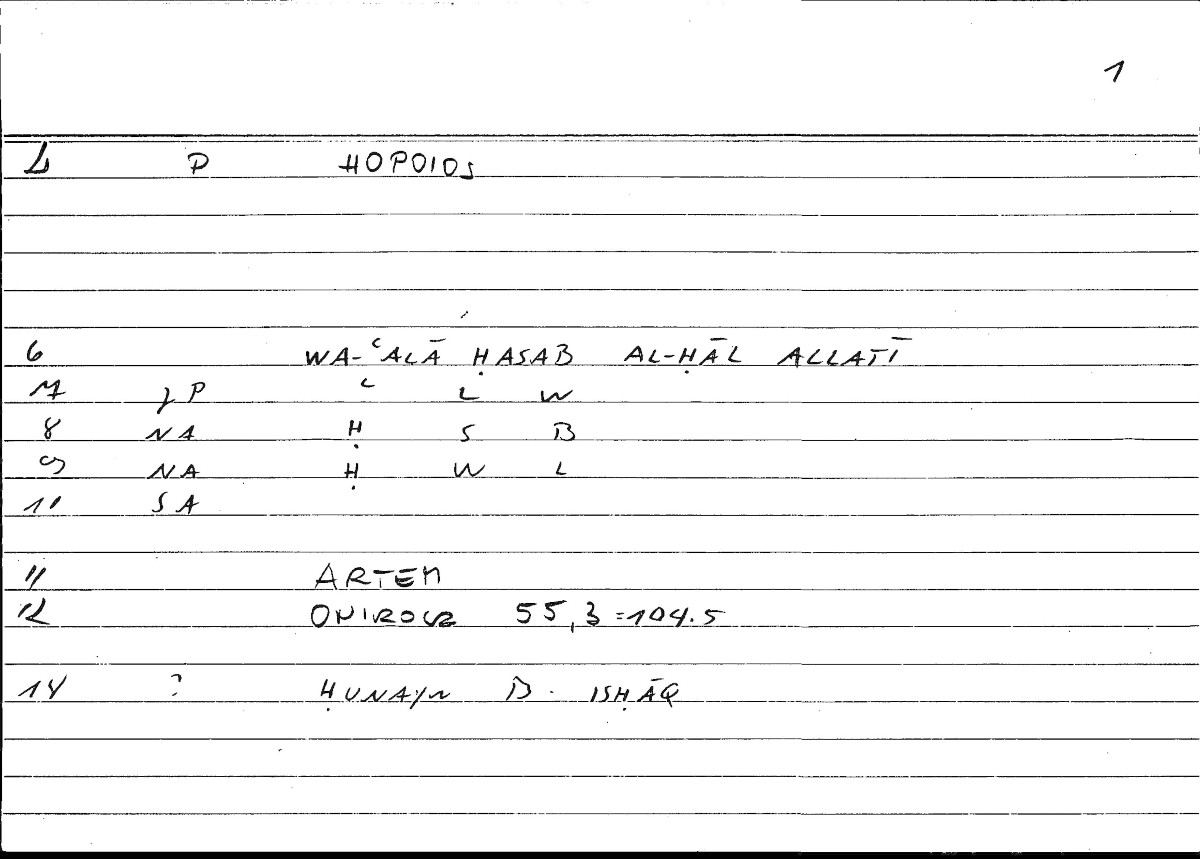 1
1 P HOPOIOS
6 WA-ʿALĀ ḤASAB AL-ḤĀL ALLATĪ
7 P ʿ L W
8 NA Ḥ S B
9 NA Ḥ W L
10 SA
11 ARTEM
12 ONIROCR 55,3=104.5
14 ? ḤUNAYN B. ISḤĀQ